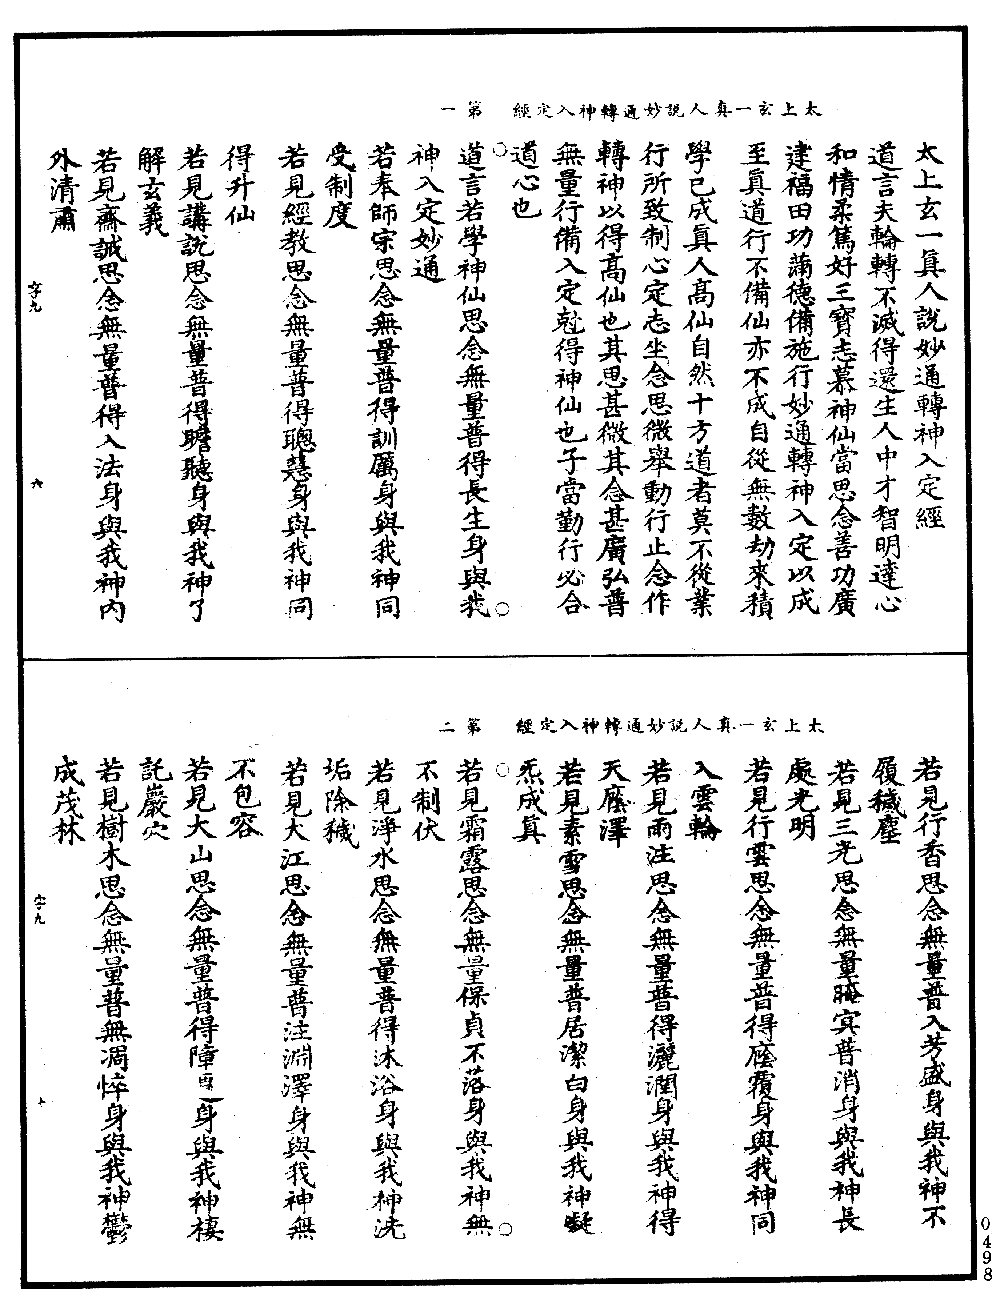 太上玄一真人說妙通轉神入定經　第一
太上玄一真人說妙通轉神入定經
道言夫輪轉不滅得還生人中才智明達心
和情柔篤好三寶志慕神仙當思念善功廣
建福田功滿德備施行妙通轉神入定以成
至真道行不備仙亦不成自從無數劫來積
學已成真人高仙自然十方道者莫不從業
行所致制心定志坐念思微舉動行止念作
轉神以得高仙也其思甚微其念甚廣弘普
無量行備入定尅得神仙也子當勤行必合
道心也
道言若學神仙思念無量普得長生身與我
神入定妙通
若奉師宗思念無量普得訓厲身與我神同
受制度
若見經教思念無量普得聰慧身與我神同
得升仙
若見講說思念無量普得聽身與我神了
解玄義
若見齋誡思念無量普得入法身與我神內
外清肅
字九
六
太上玄一真人說妙通轉神入定經　第二
若見行香思念無量普入芳盛身與我神不
履穢塵
若見三光思念無量普消身與我神長
處光明
若見行雲思念無量普得廕覆身與我神同
入雲輪
若見雨注思念無量普得灑潤身與我神得
天廕澤
若見素雪思念無量普居潔白身與我神凝
炁成真
若見霜露思念無量保貞不落身與我神無
不制伏
若見淨水思念無量普得沐浴身與我神洗
垢除穢
若見大江思念無量普注淵澤身與我神無
不包容
若見大山思念無量普得障身與我神棲
託巖穴
若見樹木思念無量普無凋悴身與我神鬱
成茂林
字九
0498